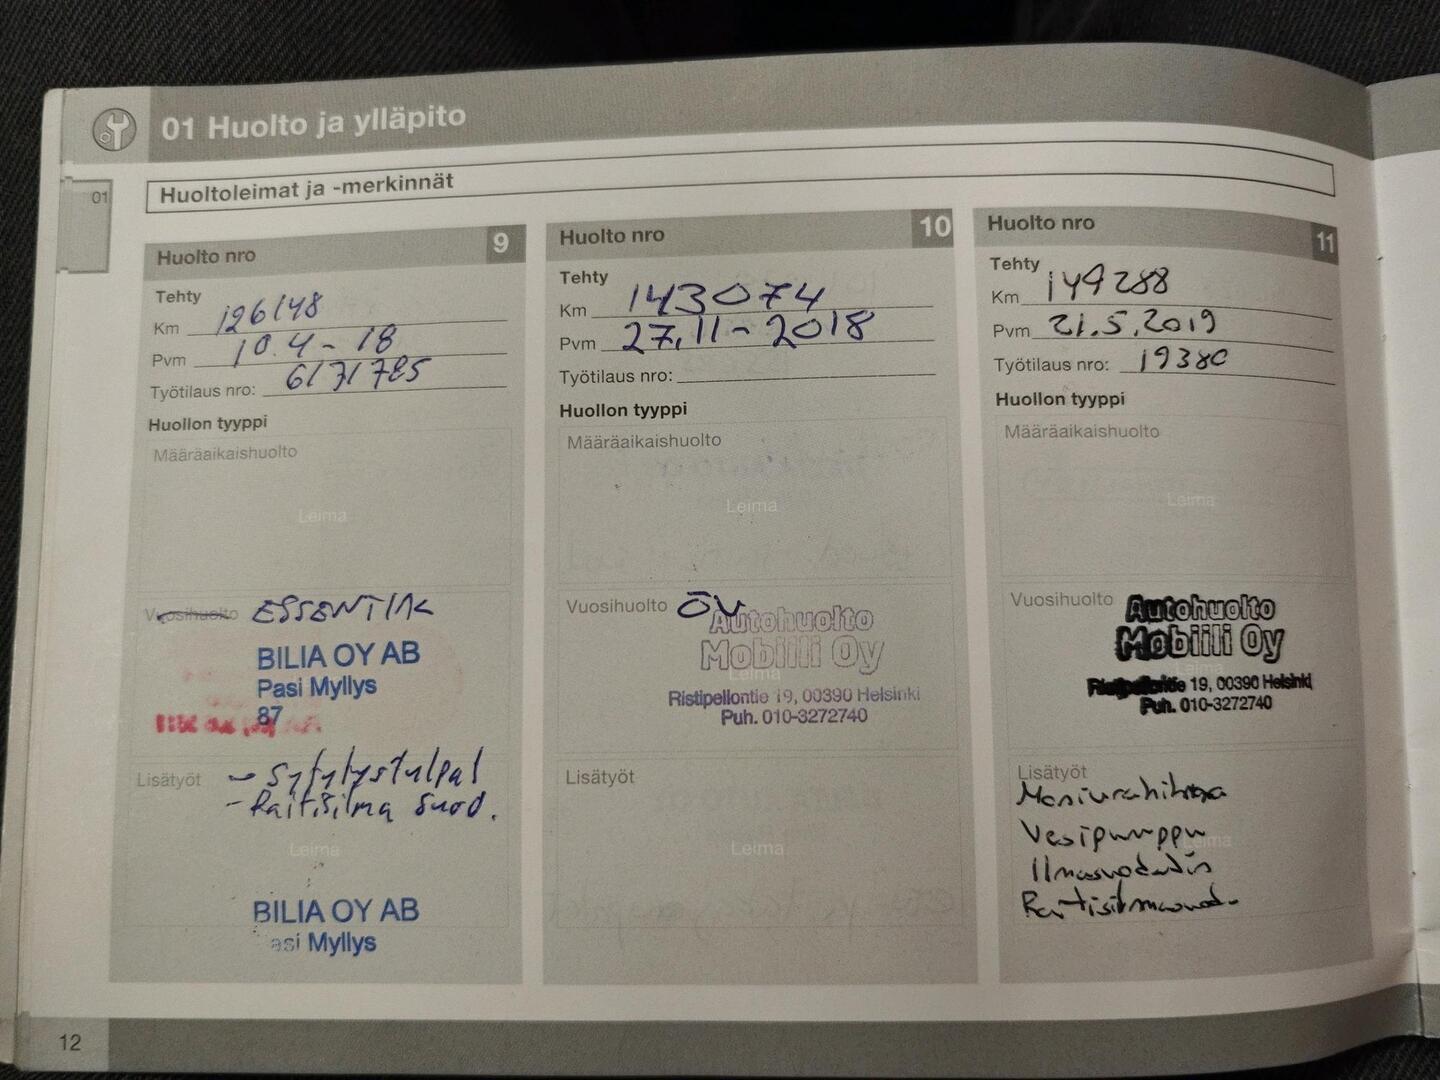 01 Huolto ja ylläpito
01
Huoltoleimat ja -merkinnät
Huolto nro 9
Tehty
Km 126148
Pvm 10.4-18
Työtilaus nro: 6131785
Huollon tyyppi
Määräaikaishuolto
Leima
Vuosihuolto ESSENTIAL
BILIA OY AB
Pasi Myllys
87
Lisätyöt - Sytytystulpat
- Raitisilma suod.
Leima
BILIA OY AB
asi Myllys
Huolto nro 10
Tehty
Km 143074
Pvm 27.11-2018
Työtilaus nro:
Huollon tyyppi
Määräaikaishuolto
Leima
Vuosihuolto ÖV
Autohuolto
Mobiili Oy
Leima
Ristipellontie 19, 00390 Helsinki
Puh. 010-3272740
Lisätyöt
Leima
Huolto nro 11
Tehty
Km 149288
Pvm 21.5.2019
Työtilaus nro: 19380
Huollon tyyppi
Määräaikaishuolto
Leima
Vuosihuolto
Autohuolto
Mobiili Oy
Leima
Ristipellontie 19, 00390 Helsinki
Puh. 010-3272740
Lisätyöt
Moniurahihna
Vesipumppu
Leima
Ilmansuodatin
Raitisilmasuod.
12